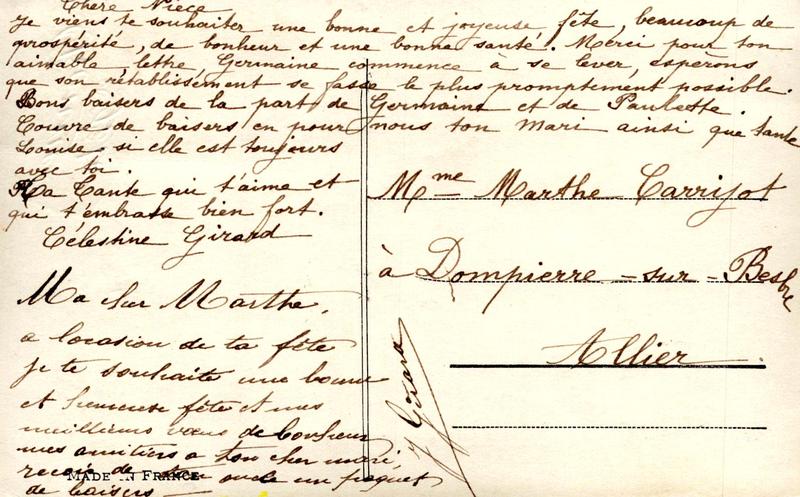 Chere Niece
je viens te souhaiter une bonne et joyeuse fête, beaucoup de
prospérité, de bonheur et une bonne santé. Merci pour ton
aimable lettre Germaine commence à se lever, esperons
que son rétablissement se fasse le plus promptement possible.
Bons baisers de la part de Germaine et de Paulette.
Couvre de baisers en pour nous ton mari ainsi que tante
Louise si elle est toujours
avec toi.
Ta Tante qui t'aime et
qui t'embrasse bien fort.
Célestine Girard
Mme Marthe Carrijot
à Dompierre-sur-Besbre
Allier
Ma Marthe,
a locasion de ta fête
je te souhaite une bonne
et heureuse fête et mes
meilleurs vœux de bonheur
mes amitiers a ton cher mari,
recois de ton oncle un paquet
de baisers
J Girard
MADE IN FRANCE